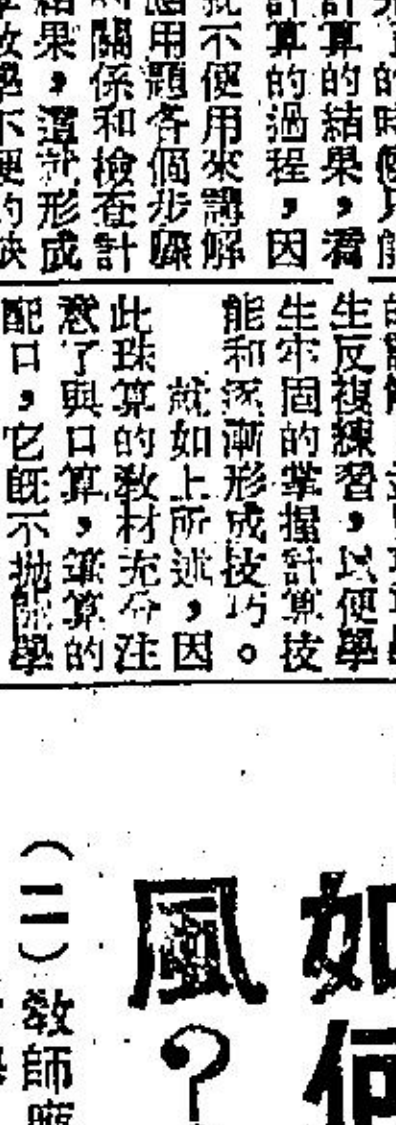 的時候只能
計算的結果，看
計算的過程，因
就不便用來講解
應用題各個步驟
的關係和檢查計
結果，這就形成
教學不便的缺
生反複練習，以便學
生牢固的掌握計算技
能和逐漸形成技巧。
就如上所述，因
此珠算的教材充分注
意了與口算，筆算的
配口，它既不拋開學
如何
風？
（二）教師應